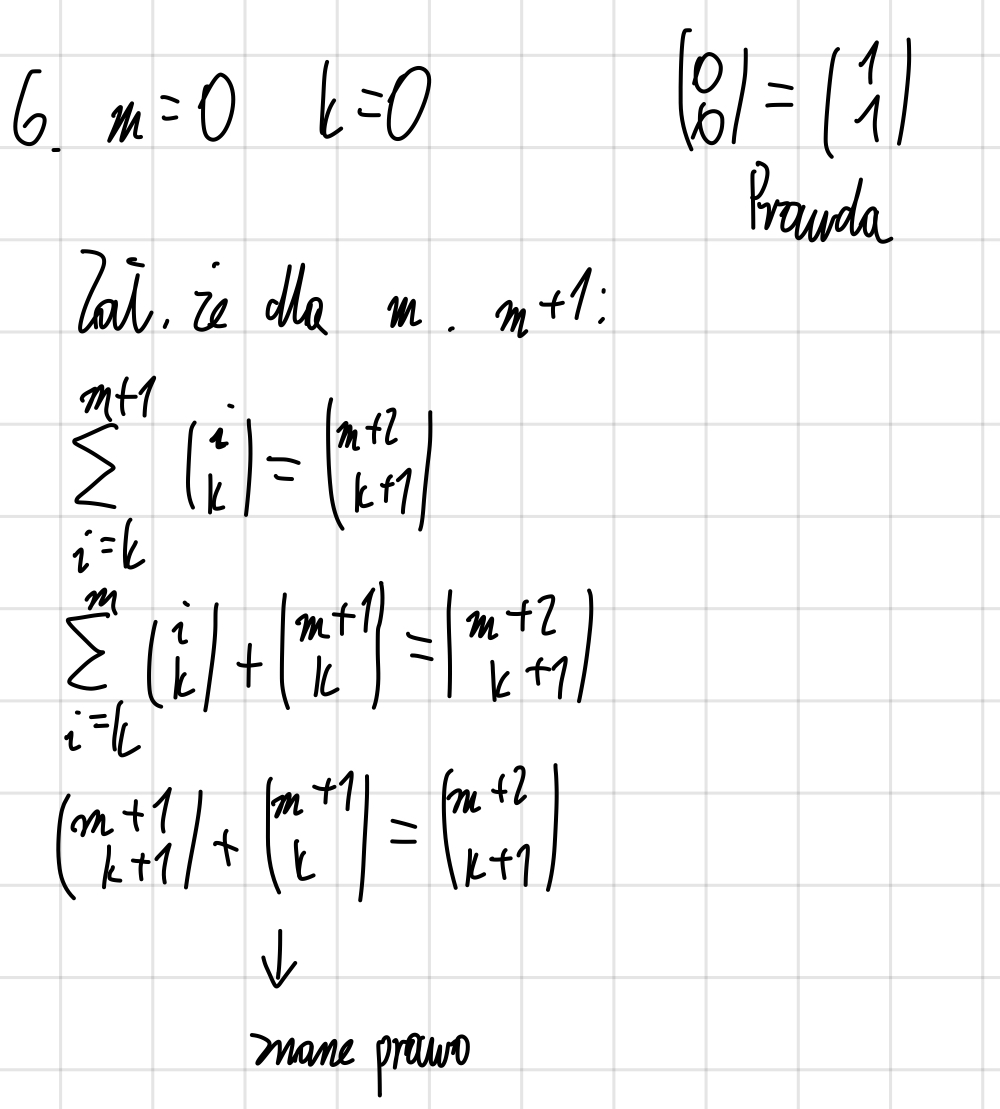 6. m=0 k=0 (0 0) = (1 1)
Prawda
Zał. że dla m. m+1:
m+1
∑ (i k) = (m+2 k+1)
i=k
m
∑ (i k) + (m+1 k) = (m+2 k+1)
i=k
(m+1 k+1) + (m+1 k) = (m+2 k+1)
↓
znane prawo